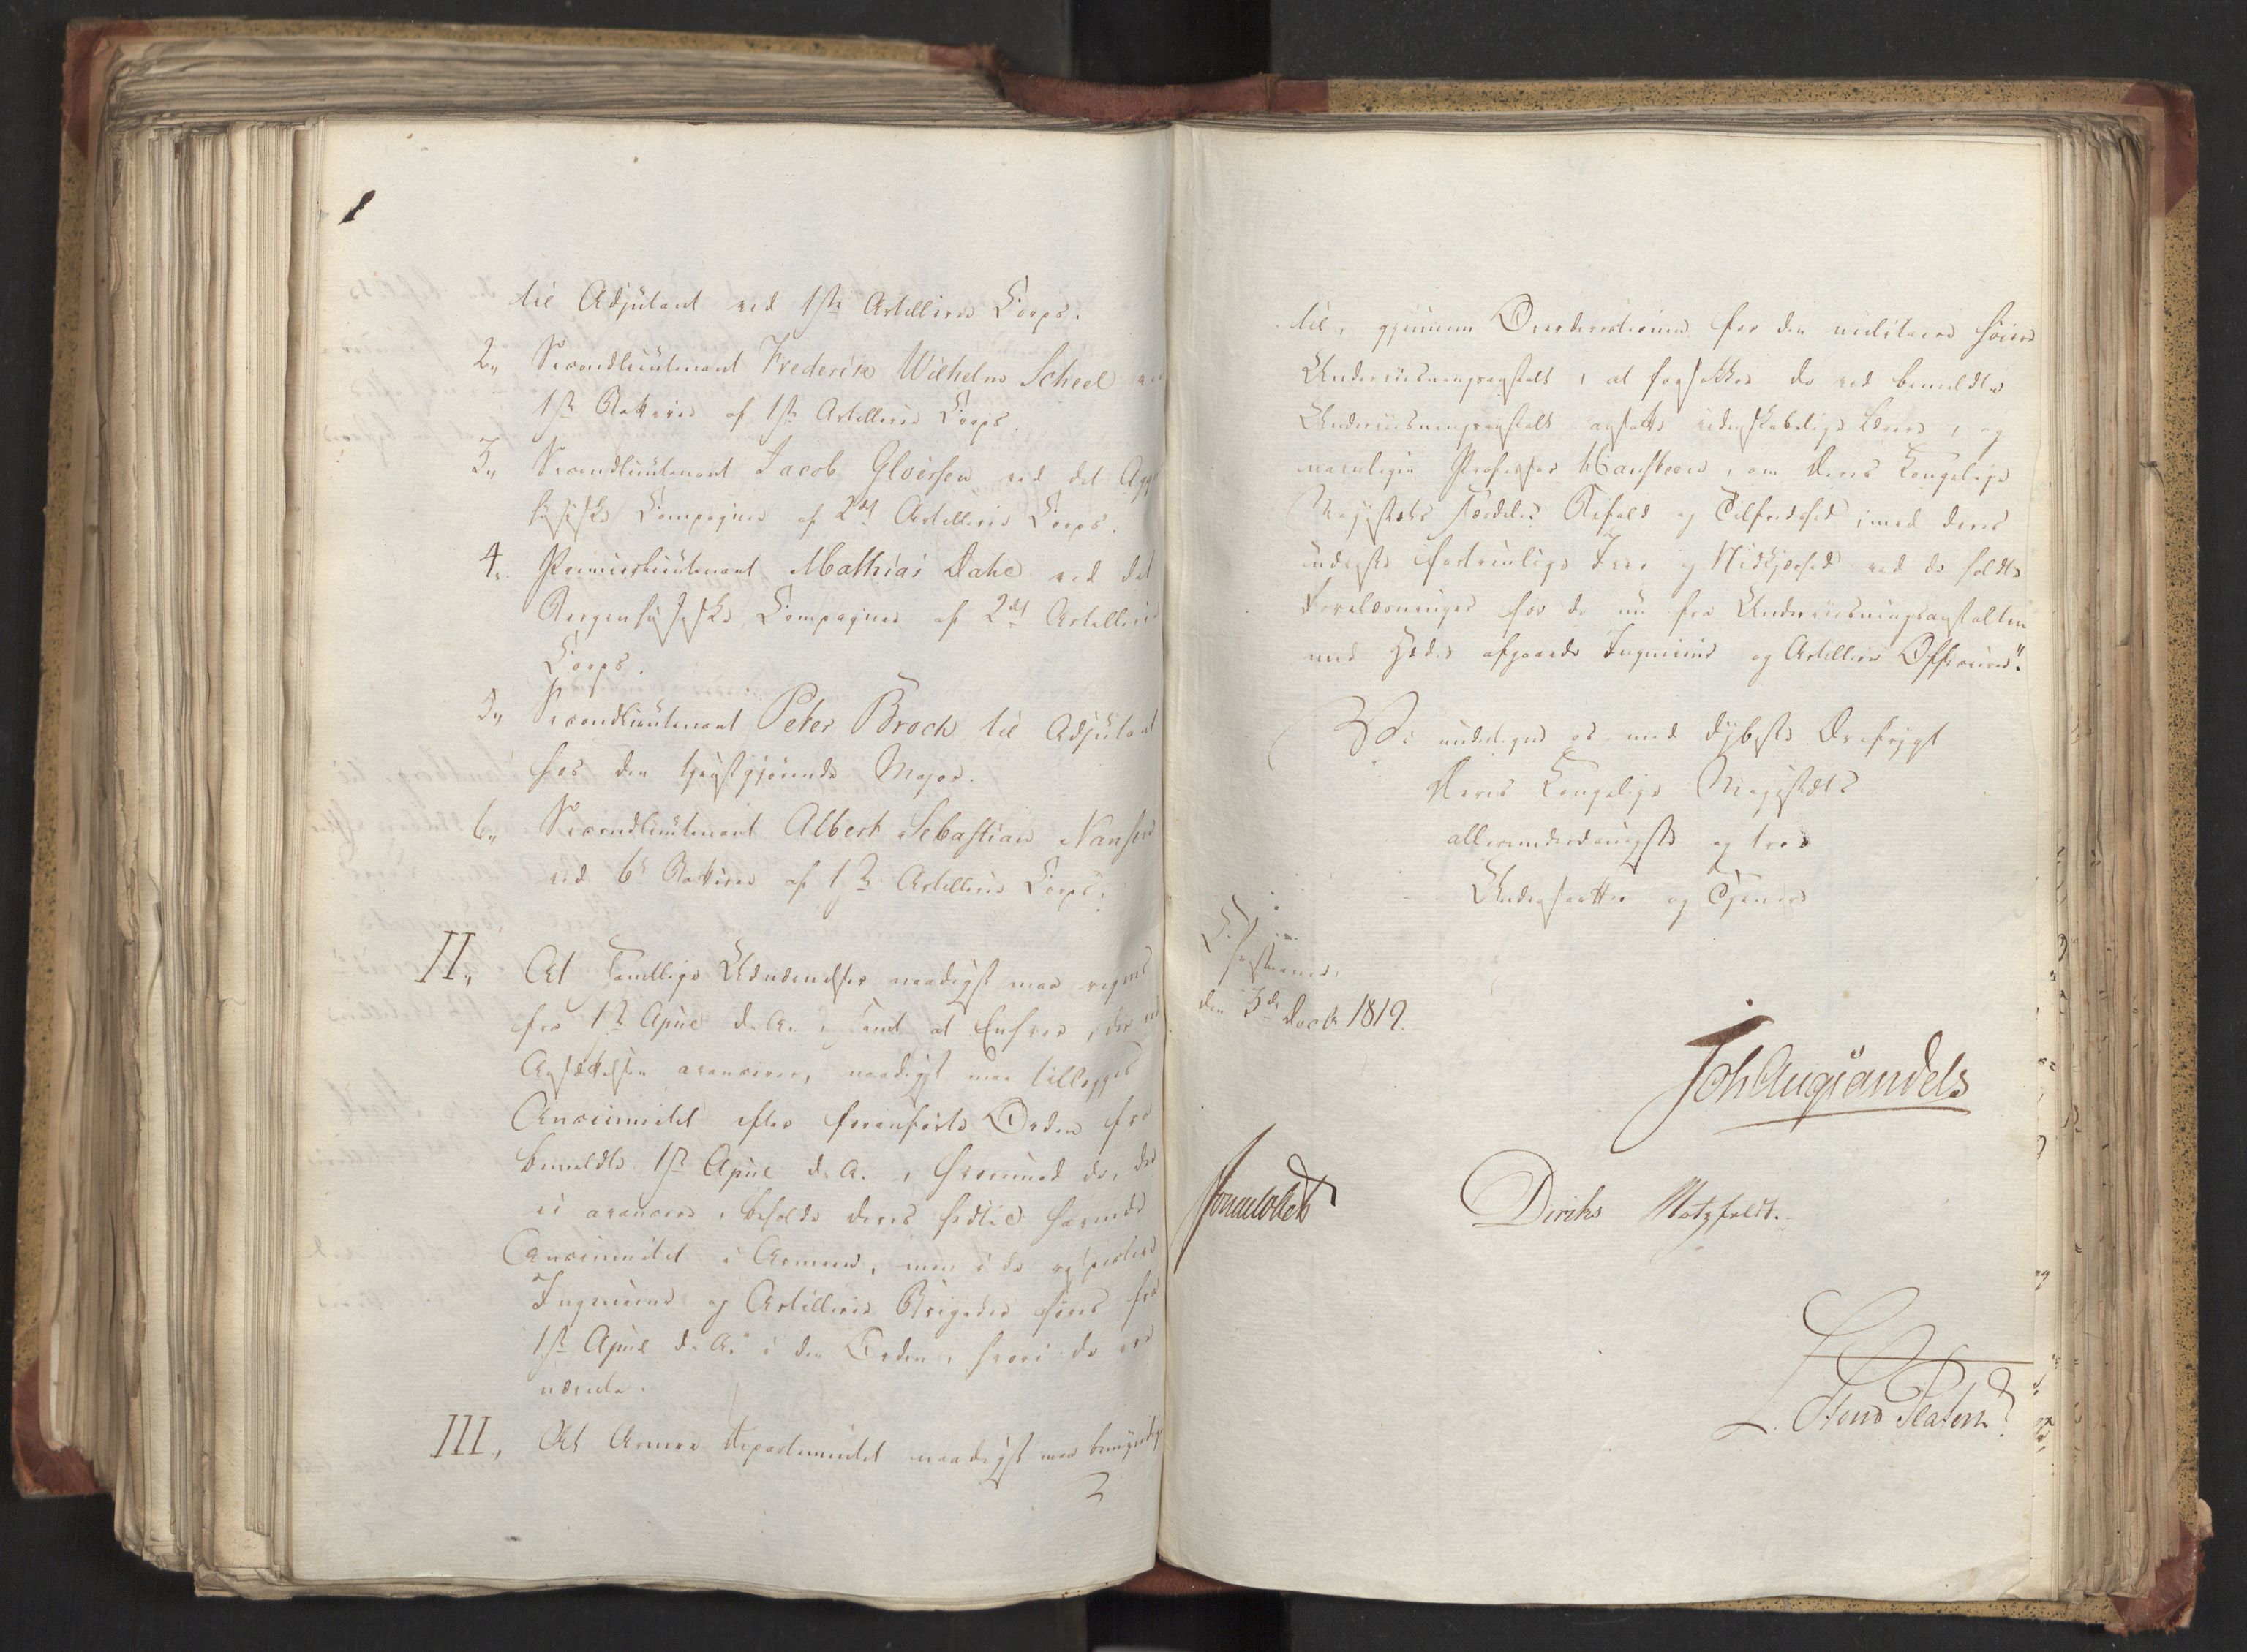 til Adjutant ved 1ste Artillerie Corps.
2,, Secondlieutenant Frederik Wilhelm Scheel ved
1ste Batterie af 1ste Artillerie Corps.
3,, Secondlieutenant Jacob Gløersen ved det Agger-
husiske Compagnie af 2det Artillerie Corps.
4,, Premierlieutenant Mathias Dahl ved det
Bergenhusiske Compagnie af 2det Artillerie
Corps.
5,, Secondlieutenant Peter Broch til Adjutant
hos den tjenstgjørende Major.
6,, Secondlieutenant Albert Sebastian Nansen
ved 6te Batterie af 1ste Artillerie Corps.
II,, At samtlige Udnævnelser naadigst maa regnes
fra 1ste April d. A., samt at Enhver, der ved
Ansættelsen avancerer, naadigst maa tillægges
Anciennitet efter foranførte Orden fra
bemeldte 1ste April d. A., hvorimod de, der
ei avancere, beholde deres hidtil havende
Anciennitet i Armeen, men i de respective
Ingenieur og Artillerie Brigader sees fra
1ste April d. A. i den Orden, hvori de ere
nævnte.
III, At Armee Departementet naadigst maa bemyndiges
til, gjennem Overdirectionen for den militaire høiere
Underviisningsanstalt, at forsikkre de ved bemeldte
Underviisningsanstalt ansatte videnskabelige Lærere, og
navnligen Professor Hansteen, om Deres Kongelige
Majestæts særdeles Bifald og Tilfredshed med deres
udviste fortrinlige Iver og Nidkjerhed ved de holdte
Forelæsninger for de nu fra Underviisningsanstalten
med Hæder afgaaede Ingenieur og Artillerie Officierer".
Vi undertegne os med dybeste Ærefrygt
Deres Kongelige Majestæts
allerunderdanigste og troe
Undersaatter og Tjenere
Christiania,
den 3de Decbr 1819.
Joh Aug Sandels
Sommelfeldt
Diriks Motzfeldt.
L. Stoud Platou